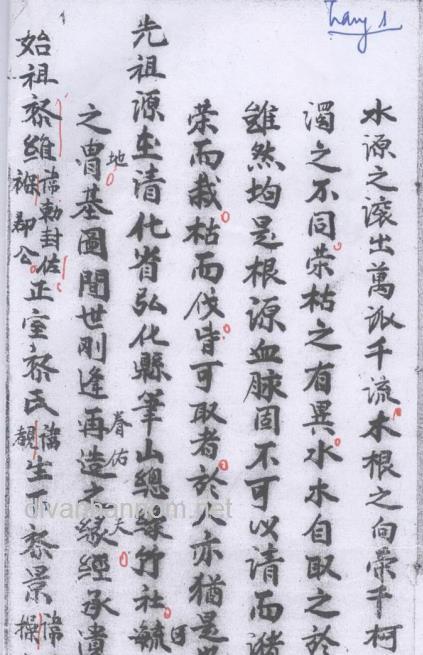 trang 1
水源之滾出萬派千流木根之向榮千柯
濁之不同榮枯之有異水木自取之於
雖然均是根源血脉固不可以清而
榮而栽枯而伐皆可取者於人亦猶是
先祖源在清化省弘化縣筆山總綠竹社毓
之曾基圖聞世剛逢再造之緣經承
地
眷佑
始祖黎維
諱勅封佐
郡公
正室黎氏
諱
生下黎景
諱
操